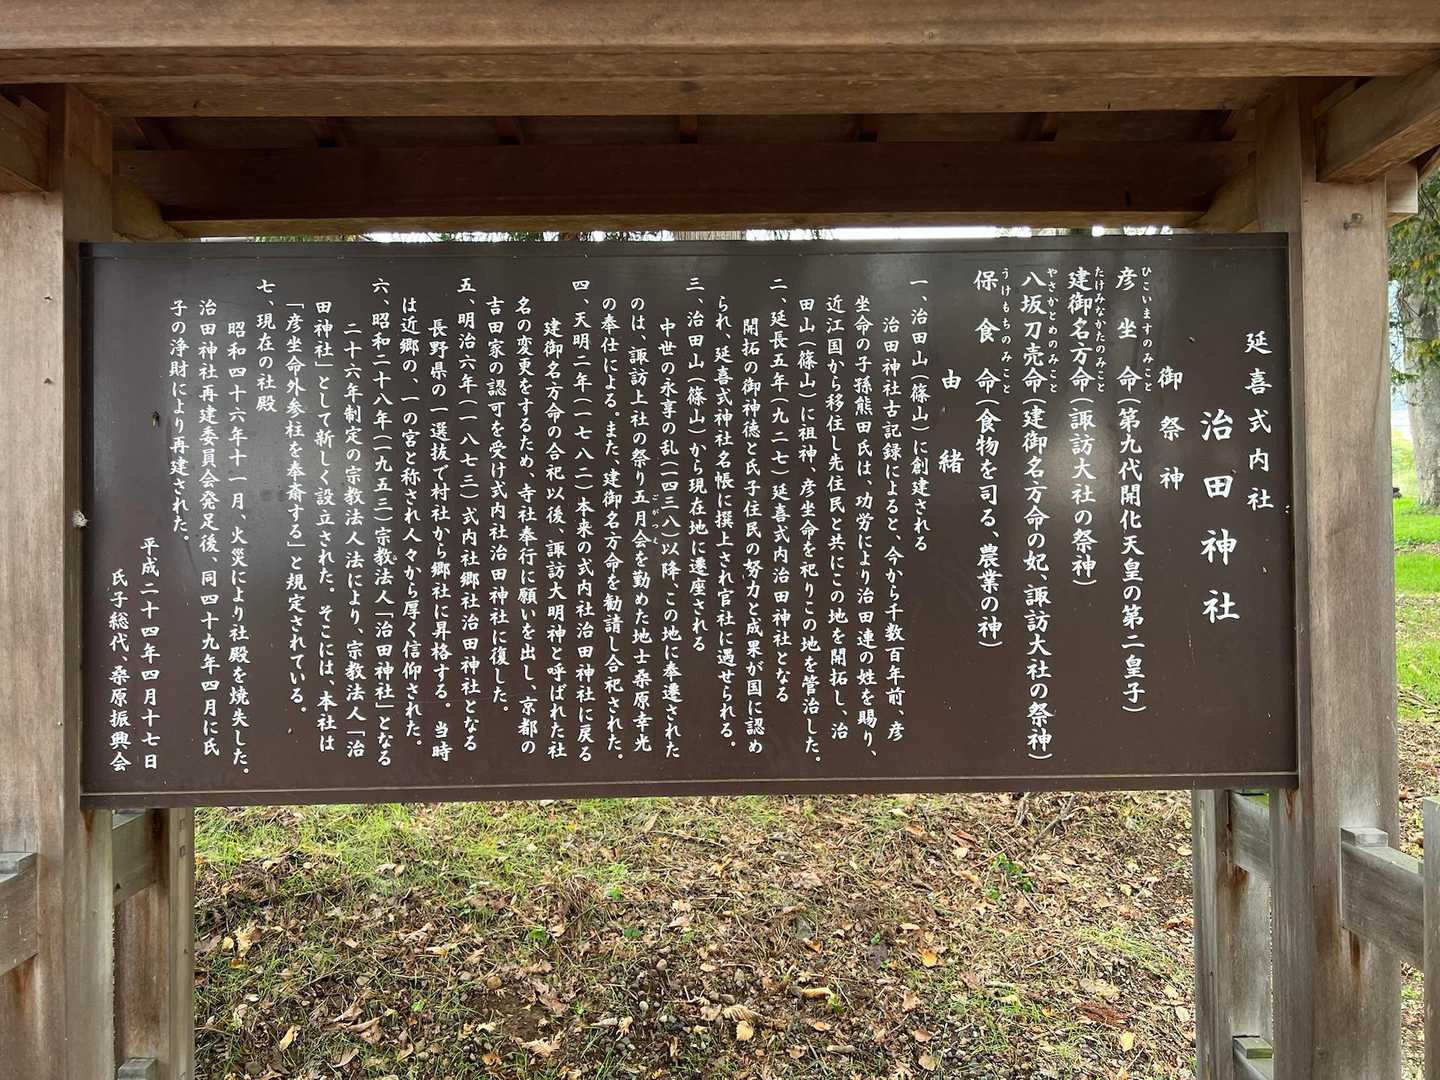 延喜式内社
治田神社
御祭神
ひこいますのみこと
彦坐命(第九代開化天皇の第二皇子)
たけみなかたのみこと
建御名方命(諏訪大社の祭神)
やさかとめのみこと
八坂刀売命(建御名方命の妃、諏訪大社の祭神)
うけもちのみこと
保食命(食物を司る、農業の神)
由緒
一、治田山(篠山)に創建される
治田神社古記録によると、今から千数百年前、彦
坐命の子孫熊田氏は、功労により治田連の姓を賜り、
近江国から移住し先住民と共にこの地を開拓し、治
田山(篠山)に祖神、彦坐命を祀りこの地を管治した。
二、延長五年(九二七)延喜式内治田神社となる
開拓の御神徳と氏子住民の努力と成果が国に認め
られ、延喜式神社名帳に撰上され官社に遇せられる。
三、治田山(篠山)から現在地に遷座される
中世の永享の乱(一四三八)以降、この地に奉遷された
のは、諏訪上社の祭り五月会を勤めた地士桑原幸光
ごがつえ
の奉仕による。また、建御名方命を勧請し合祀された。
四、天明二年(一七八二)本来の式内社治田神社に戻る
建御名方命の合祀以後、諏訪大明神と呼ばれた社
名の変更をするため、寺社奉行に願いを出し、京都の
吉田家の認可を受け式内社治田神社に復した。
五、明治六年(一八七三)式内社郷社治田神社となる
長野県の一選抜で村社から郷社に昇格する。当時
は近郷の、一の宮と称され人々から厚く信仰された。
六、昭和二十八年(一九五三)宗教法人「治田神社」となる
二十六年制定の宗教法人法により、宗教法人「治
田神社」として新しく設立された。そこには、本社は
「彦坐命外参柱を奉斎する」と規定されている。
七、現在の社殿
昭和四十六年十一月、火災により社殿を焼失した。
治田神社再建委員会発足後、同四十九年四月に氏
子の浄財により再建された。
平成二十四年四月十七日
氏子総代、桑原振興会